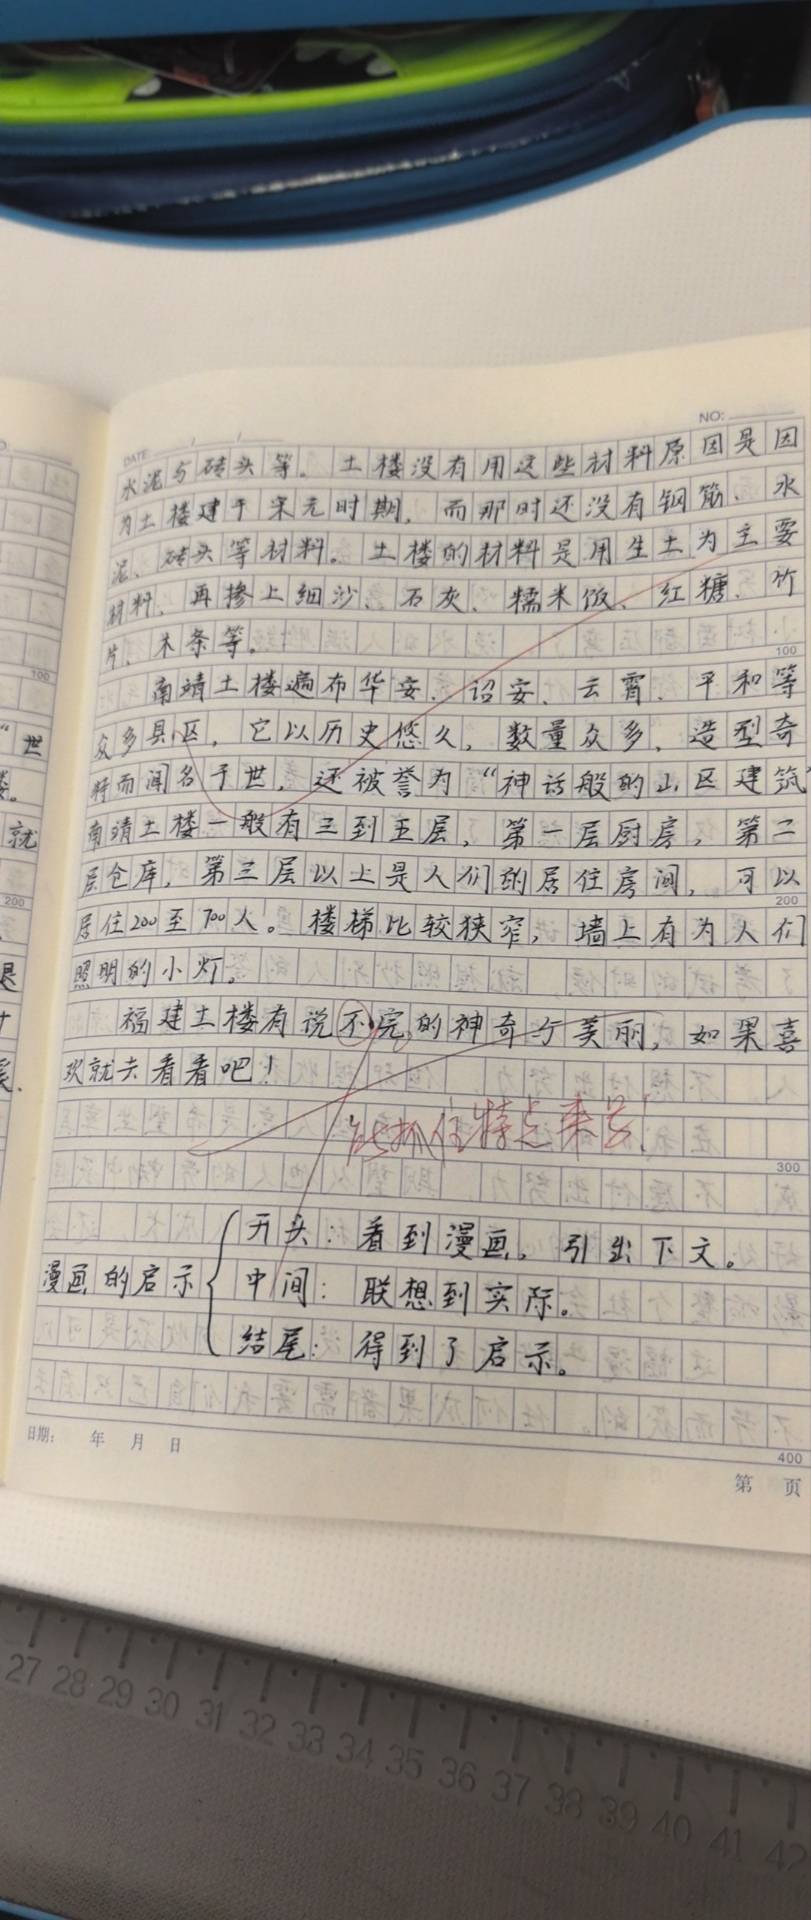 NO:
DATE / /
水泥与砖头等。土楼没有用这些材料原因是因
为土楼建于宋元时期，而那时还没有钢筋、水
泥、砖头等材料。土楼的材料是用生土为主要
材料，再掺上细沙、石灰、糯米饭、红糖、竹
片、木条等。
100
南靖土楼遍布华安、诏安、云霄、平和等
众多县区，它以历史悠久，数量众多，造型奇
特而闻名于世，还被誉为“神话般的山区建筑”
南靖土楼一般有三到五层，第一层厨房，第二
层仓库，第三层以上是人们的居住房间，可以
200
居住200至700人。楼梯比较狭窄，墙上有为人们
照明的小灯。
福建土楼有说不完的神奇与美丽，如果喜
欢就去看看吧！
能抓住特点来写！
300
漫画的启示
开头：看到漫画，引出下文。
中间：联想到实际。
结尾：得到了启示。
400
日期： 年 月 日
第 页
100
“世
就
200
27 28 29 30 31 32 33 34 35 36 37 38 39 40 41 42